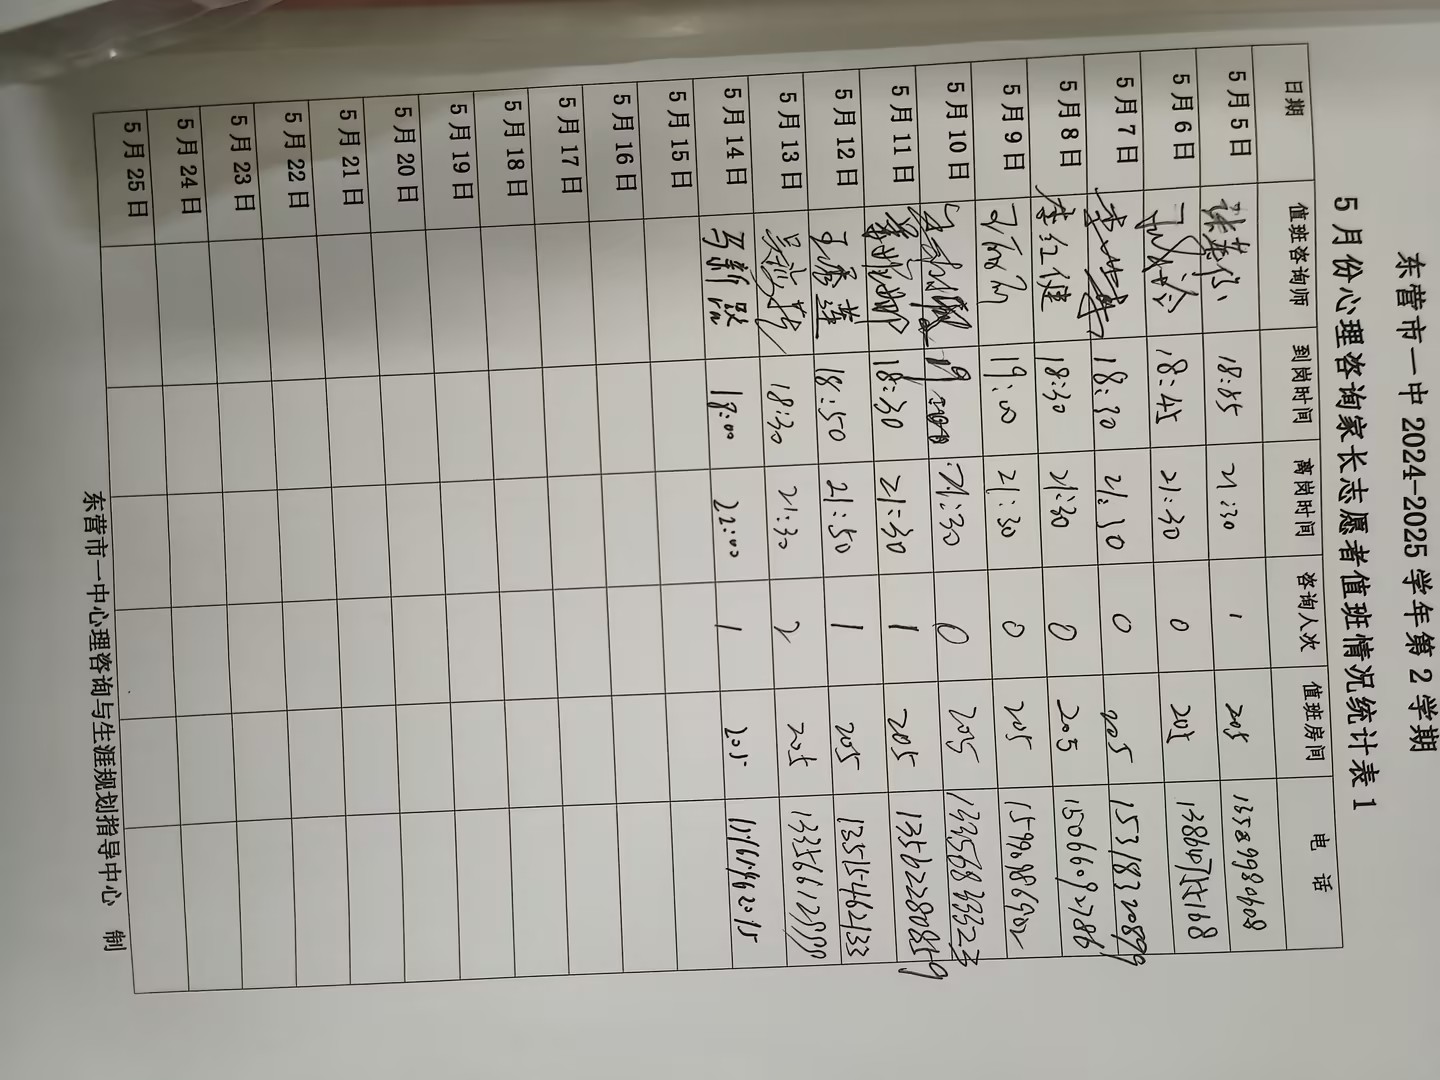 东营市一中 2024-2025 学年第 2 学期
5 月份心理咨询家长志愿者值班情况统计表 1
日期 值班咨询师 到岗时间 离岗时间 咨询人次 值班房间 电 话
5 月 5 日 21:30 1 205 13589980608
5 月 6 日 18:45 21:30 0 205
5 月 7 日 18:30 21:30 0 205 15318320899
5 月 8 日 李红健 18:30 21:30 0 205 15066092786
5 月 9 日 19:00 21:30 0 205
5 月 10 日 21:30 0 205
5 月 11 日 18:30 21:30 1 205 13562280859
5 月 12 日 王秀莲 18:50 21:50 1 205 13515462133
5 月 13 日 18:30 21:30 2 205
5 月 14 日 18:00 22:00 1 205
5 月 15 日
5 月 16 日
5 月 17 日
5 月 18 日
5 月 19 日
5 月 20 日
5 月 21 日
5 月 22 日
5 月 23 日
5 月 24 日
5 月 25 日
东营市一中心理咨询与生涯规划指导中心 制